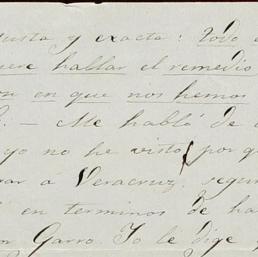 justa y exacta: Todo
hallar el remedio
en que nos hemos
— Me habló de
yo no he visto por q
á Veracruz, segun
en terminos de ha
Garro. Yo le dige